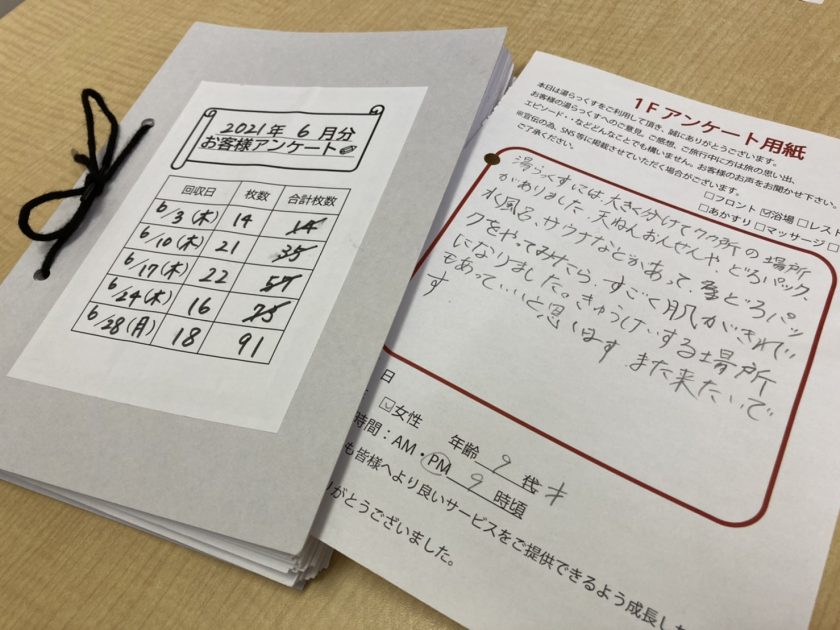 2021年 6 月分
お客様アンケート
回収日 枚数 合計枚数
6/3(木) 14 14
6/10(木) 21 35
6/17(木) 22 57
6/24(木) 16 75
6/28(月) 18 91
1Fアンケート用紙
本日は湯らっくすをご利用して頂き、誠にありがとうございます。
お客様の湯らっくすへのご意見、ご感想、ご旅行中に方は旅の思い出、
エピソード・・などどんなことでも構いません。お客様のお声をお聞かせ下さい。
※宣伝の為、SNS等に掲載させていただく場合がございます。
ご了承ください。
□フロント ☑浴場 □レスト
□あかすり □マッサージ □
湯らっくすには大きく分けて7ヶ所の場所
がありました。天ねんおんせんや、どろパック、
水風呂、サウナなどがあって、どろパッ
クをやってみたら、すごく肌がきれい
になりました。きゅうけいする場所
もあっていいと思います また来たいで
す.
日
☑女性 年齢 9 代才
時間:AM・PM 9 時頃
も皆様へより良いサービスをご提供できるよう成長した
りがとうございました。